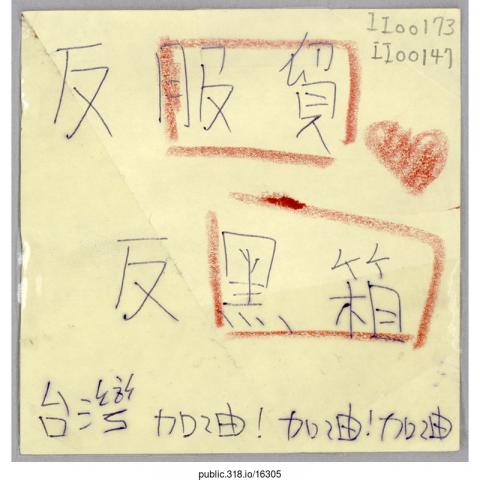 II00173
II00147
反 服貿
反 黑箱
台灣 加油! 加油! 加油
public.318.io/16305